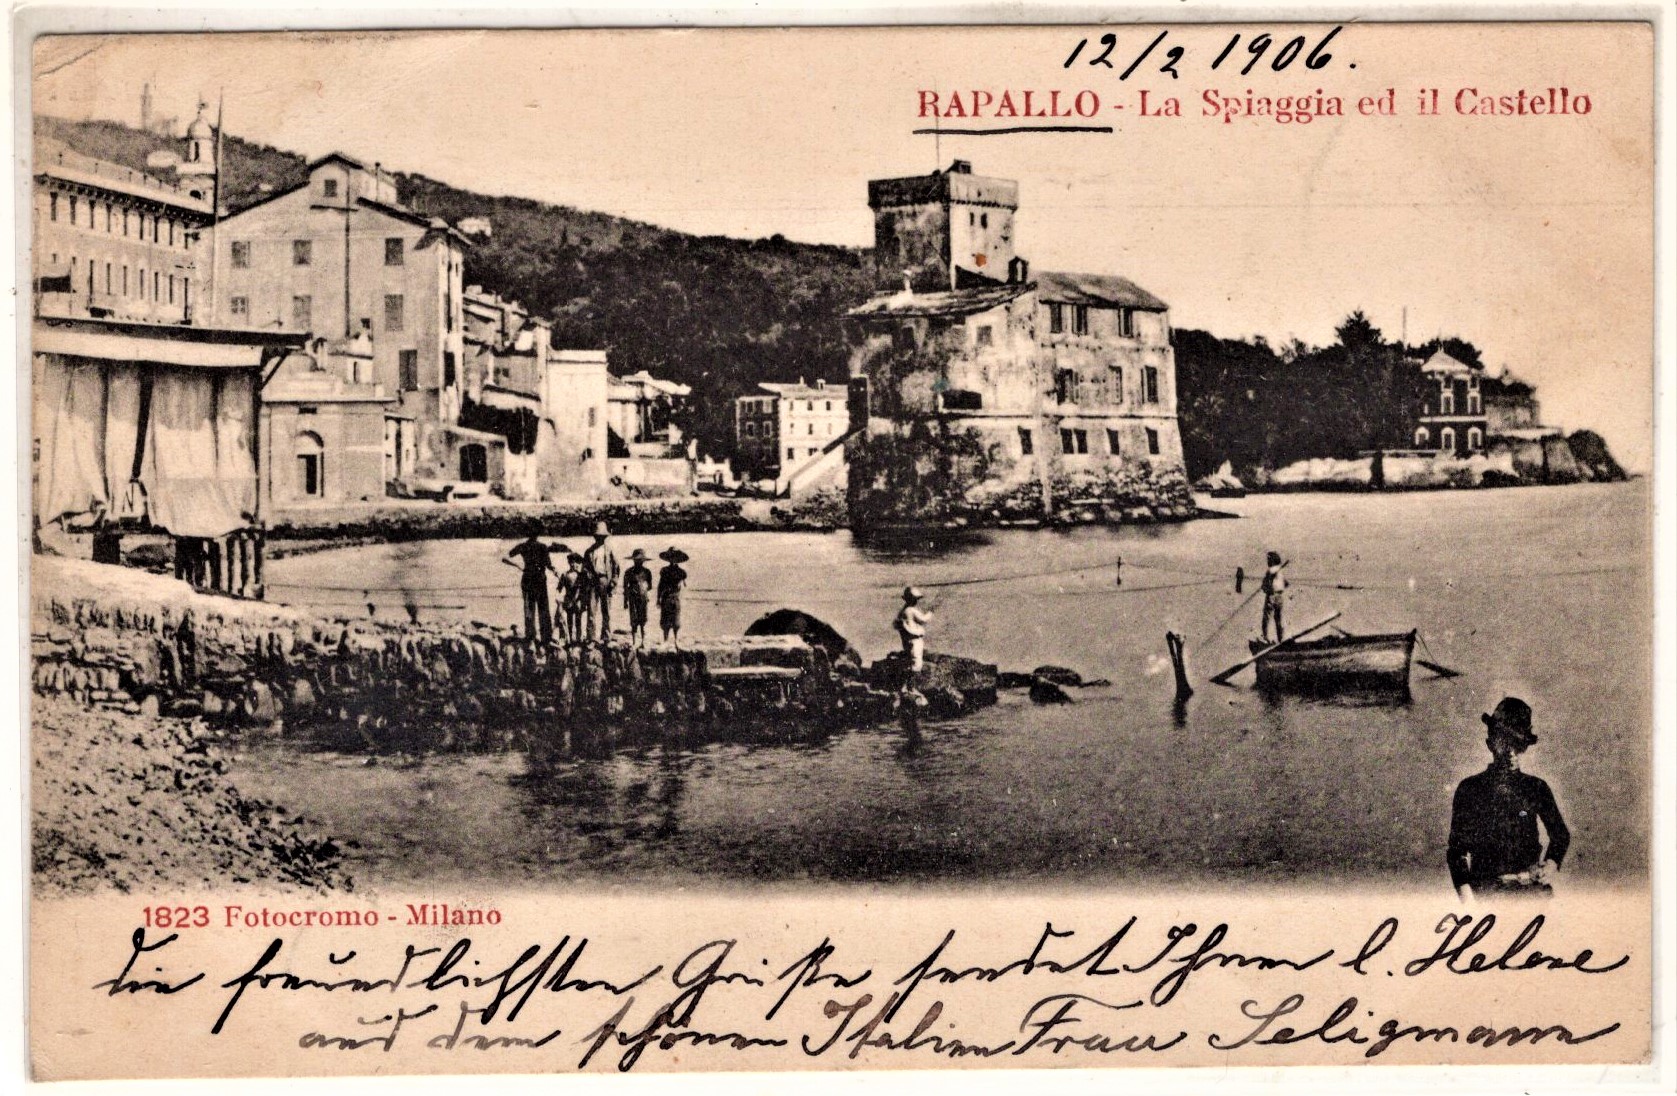 12/2 1906.
RAPALLO - La Spiaggia ed il Castello
1823 Fotocromo - Milano
die freundlichsten Grüße sendet Ihnen l. Helene
aus dem schönen Italien Frau Seligmann